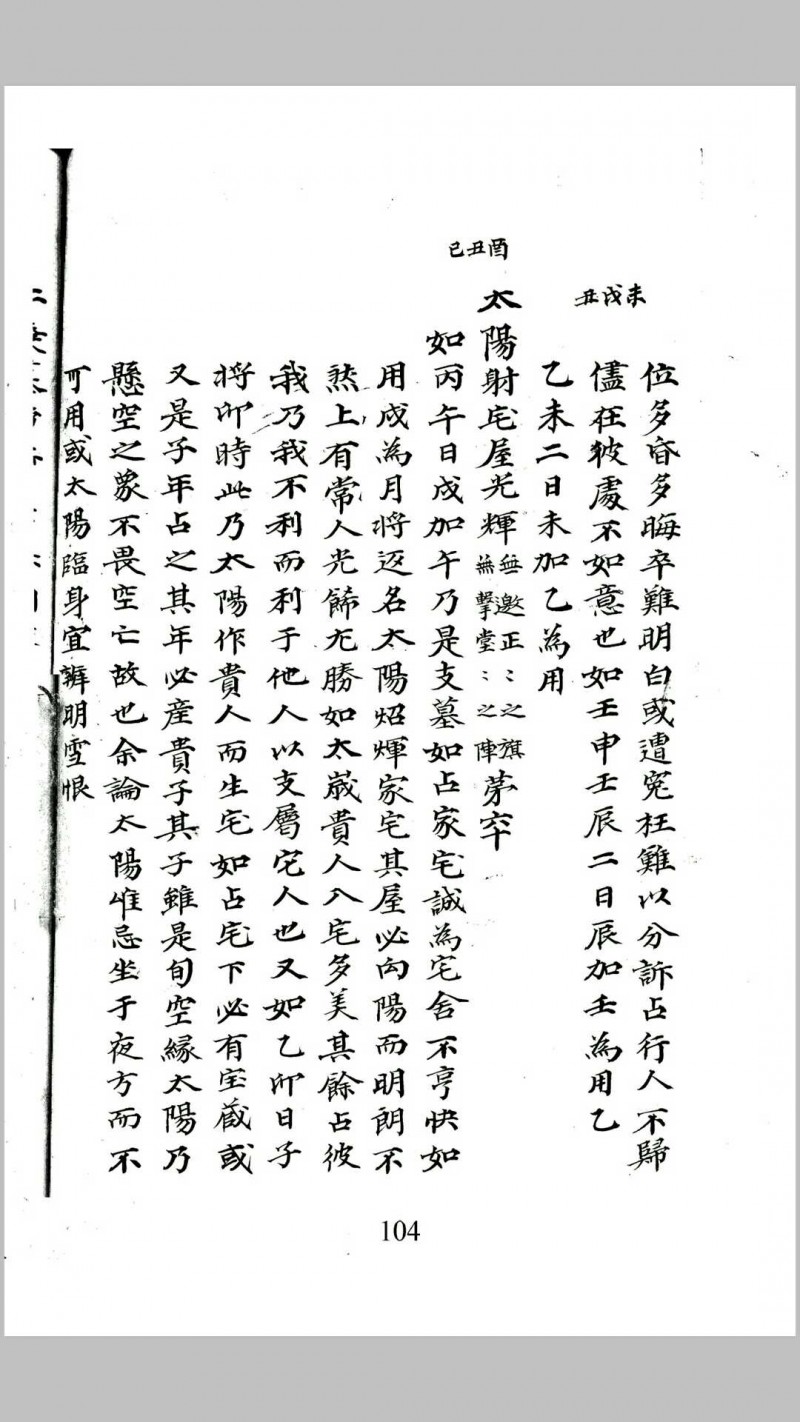 未戌丑
位多昏多晦卒難明白或遭冤枉難以分訴占行人不歸
儘在彼處不如意也如壬申壬辰二日辰加壬為用乙
乙未二日未加乙為用
酉丑巳
太陽射宅屋光輝無邀正〻之旗無擊堂〻之陣苐卒
如丙午日戌加午乃是支墓如占家宅誠為宅舍不亨快如
用戌為月將返名太陽炤煇家宅其屋必向陽而明朗不
然上有常人光餙尤勝如太歲貴人入宅多美其餘占彼
我乃我不利而利于他人以支屬宅人也又如乙卯日子
將卯時此乃太陽作貴人而生宅如占宅下必有宝藏或
又是子年占之其年必産貴子其子雖是旬空縁太陽乃
懸空之象不畏空亡故也余論太陽惟忌坐于夜方而不
可用或太陽臨身宜辨明雪恨
104